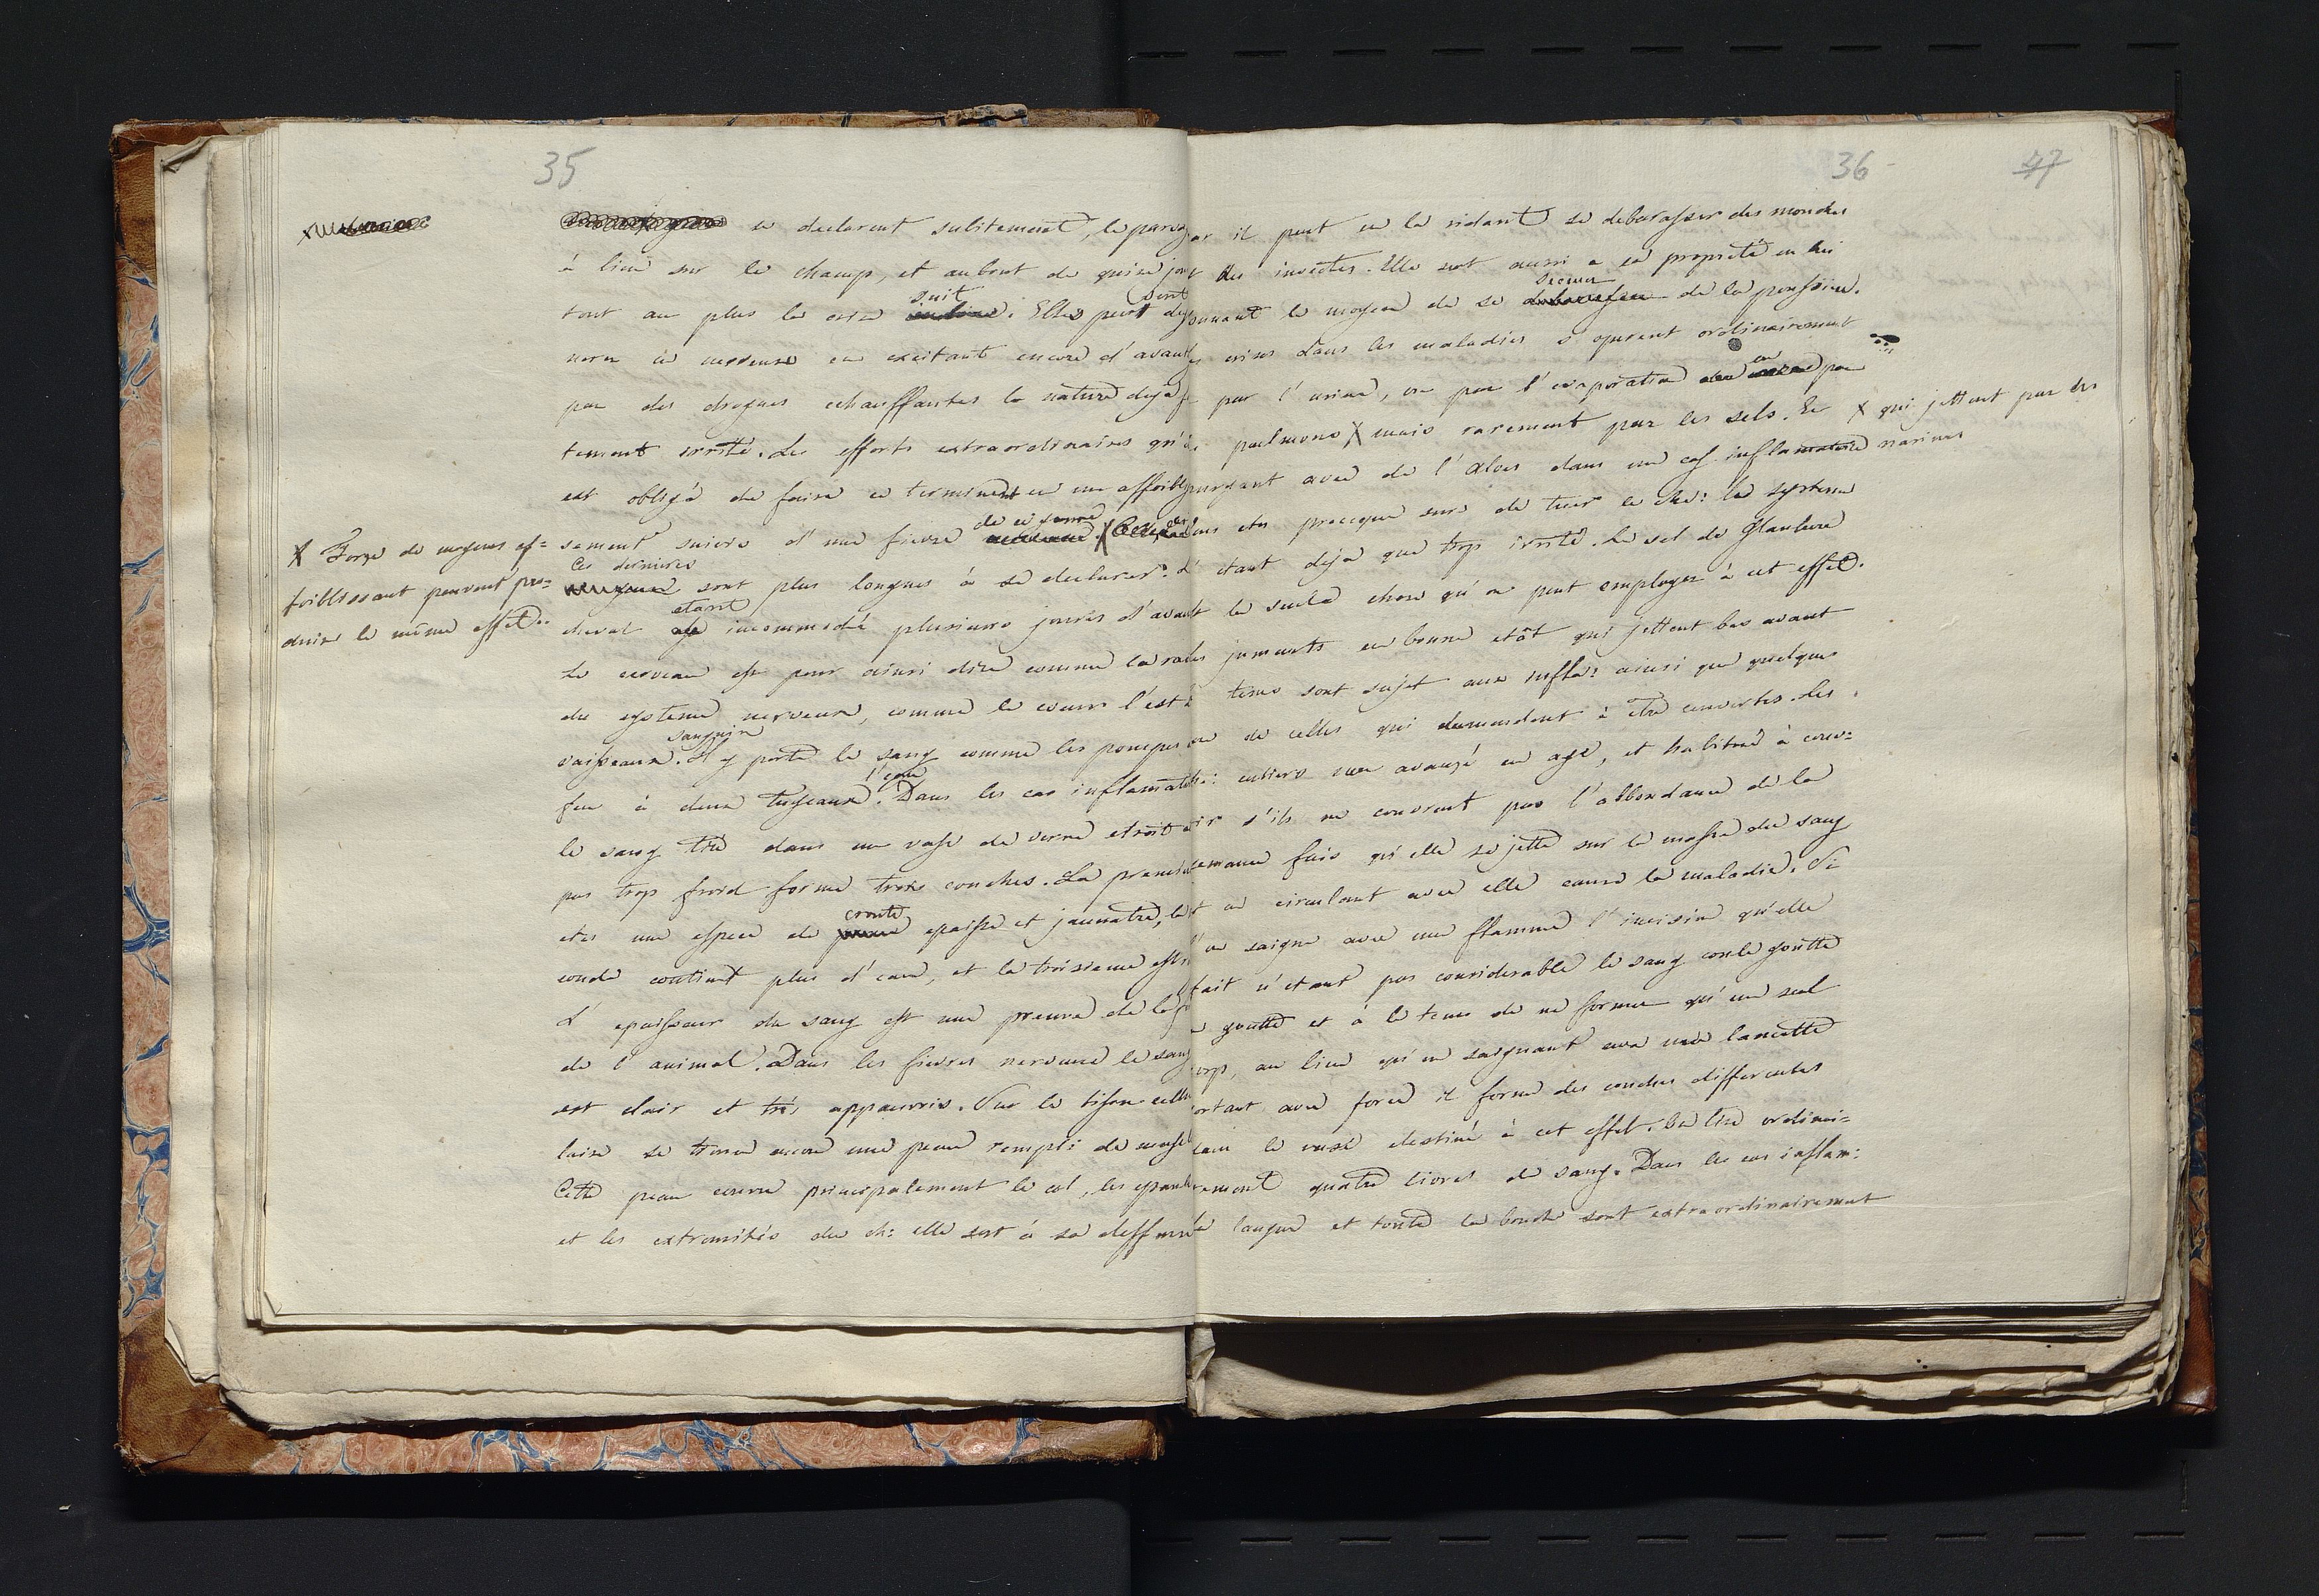 35
se declarent subitement, le paroxy
à lieu sur le champ, et au bout de quinze jour
tout au plus la crise suit. Elles peuvent deg
nerer en nerveuse en excitant encore d'avant
par des drogues echauffantes la nature dejà
tement irrité. Les efforts extraordinaires qu'
est obligé de faire se terminent en un affoibly
sement suivis d'une fievre de ce genre. X
X Forge de moyens af=
foiblissant peuvent pro=
duire le même effet.
ces dernieres sont plus longues à se declarer. L
cheval etant incommodé plusieurs jours d'avant
Le cerveau est pour ainsi dire comme la
du systeme nerveux, comme le coeur l'est
vaisseaux sanguin. Il y porte le sang comme les pompes
feu à deux tuyeaux l'eau. Dans les cas inflamat
le sang tiré dans un vase de verre etroit
pas trop froid forme trois couches. La premie
etes une espece de croute epaisse et jaunatre, la
conde contient plus d'eau, et la troisieme est
L'epaisseur du sang est une preuve de la
de l'animal. Dans les fievres nerveuse le sang
est clair et très appauvris. Sur le tissu cellu
laire se trouve encore une peau rempli de muscl
Cette peau couvre principalement le col, les epaul
et les extremités du ch: elle sert à sa deffense
36
47
ar il peut en la ridant se debarasser des mouches
des insectes. Elle sert aussi a sa propreté en lui
onnant le moyen de se secouer de la poussiere.
es crises dans les maladies s'operent ordinairement
par l'urine, ou par l'evaporation ou par
pulmons X mais rarement par les sels. En
X qui jettent par les
narines
purgant avec de l'Aloes dans un cas inflamatoire
ons etes presque sure de tuer le che: le systeme
etant dejà que trop irrité. Le sel de Glaubere
la seule chose qu'on peut employer à cet effet.
es juments en bonne etât qui jettent bas avant
tems sont sujet aux infla: ainsi que quelques
une de celles qui demandent à être couvertes. Les
entiers un avanzé en age, et habitué à couv=
rir s'ils ne couvrent pas l'abbondance de la
semance fais qu'elle se jette sur la masse du sang
et en circulant avec elle cause la maladie. Si
l'on saigne avec une flamme l'incision qu'elle
fait n'etant pas considerable le sang coule goutte
a goutte et à le tems de ne former qu'un seul
corps, au lieu qu'en saignant avec une lancette
ortant avec force il forme des couches differentes
dans le vase destiné à cet effet. On tire ordinai=
rement quatre livres de sang. Dans les cas inflam:
la langue et toute la bouche sont extraordinairement